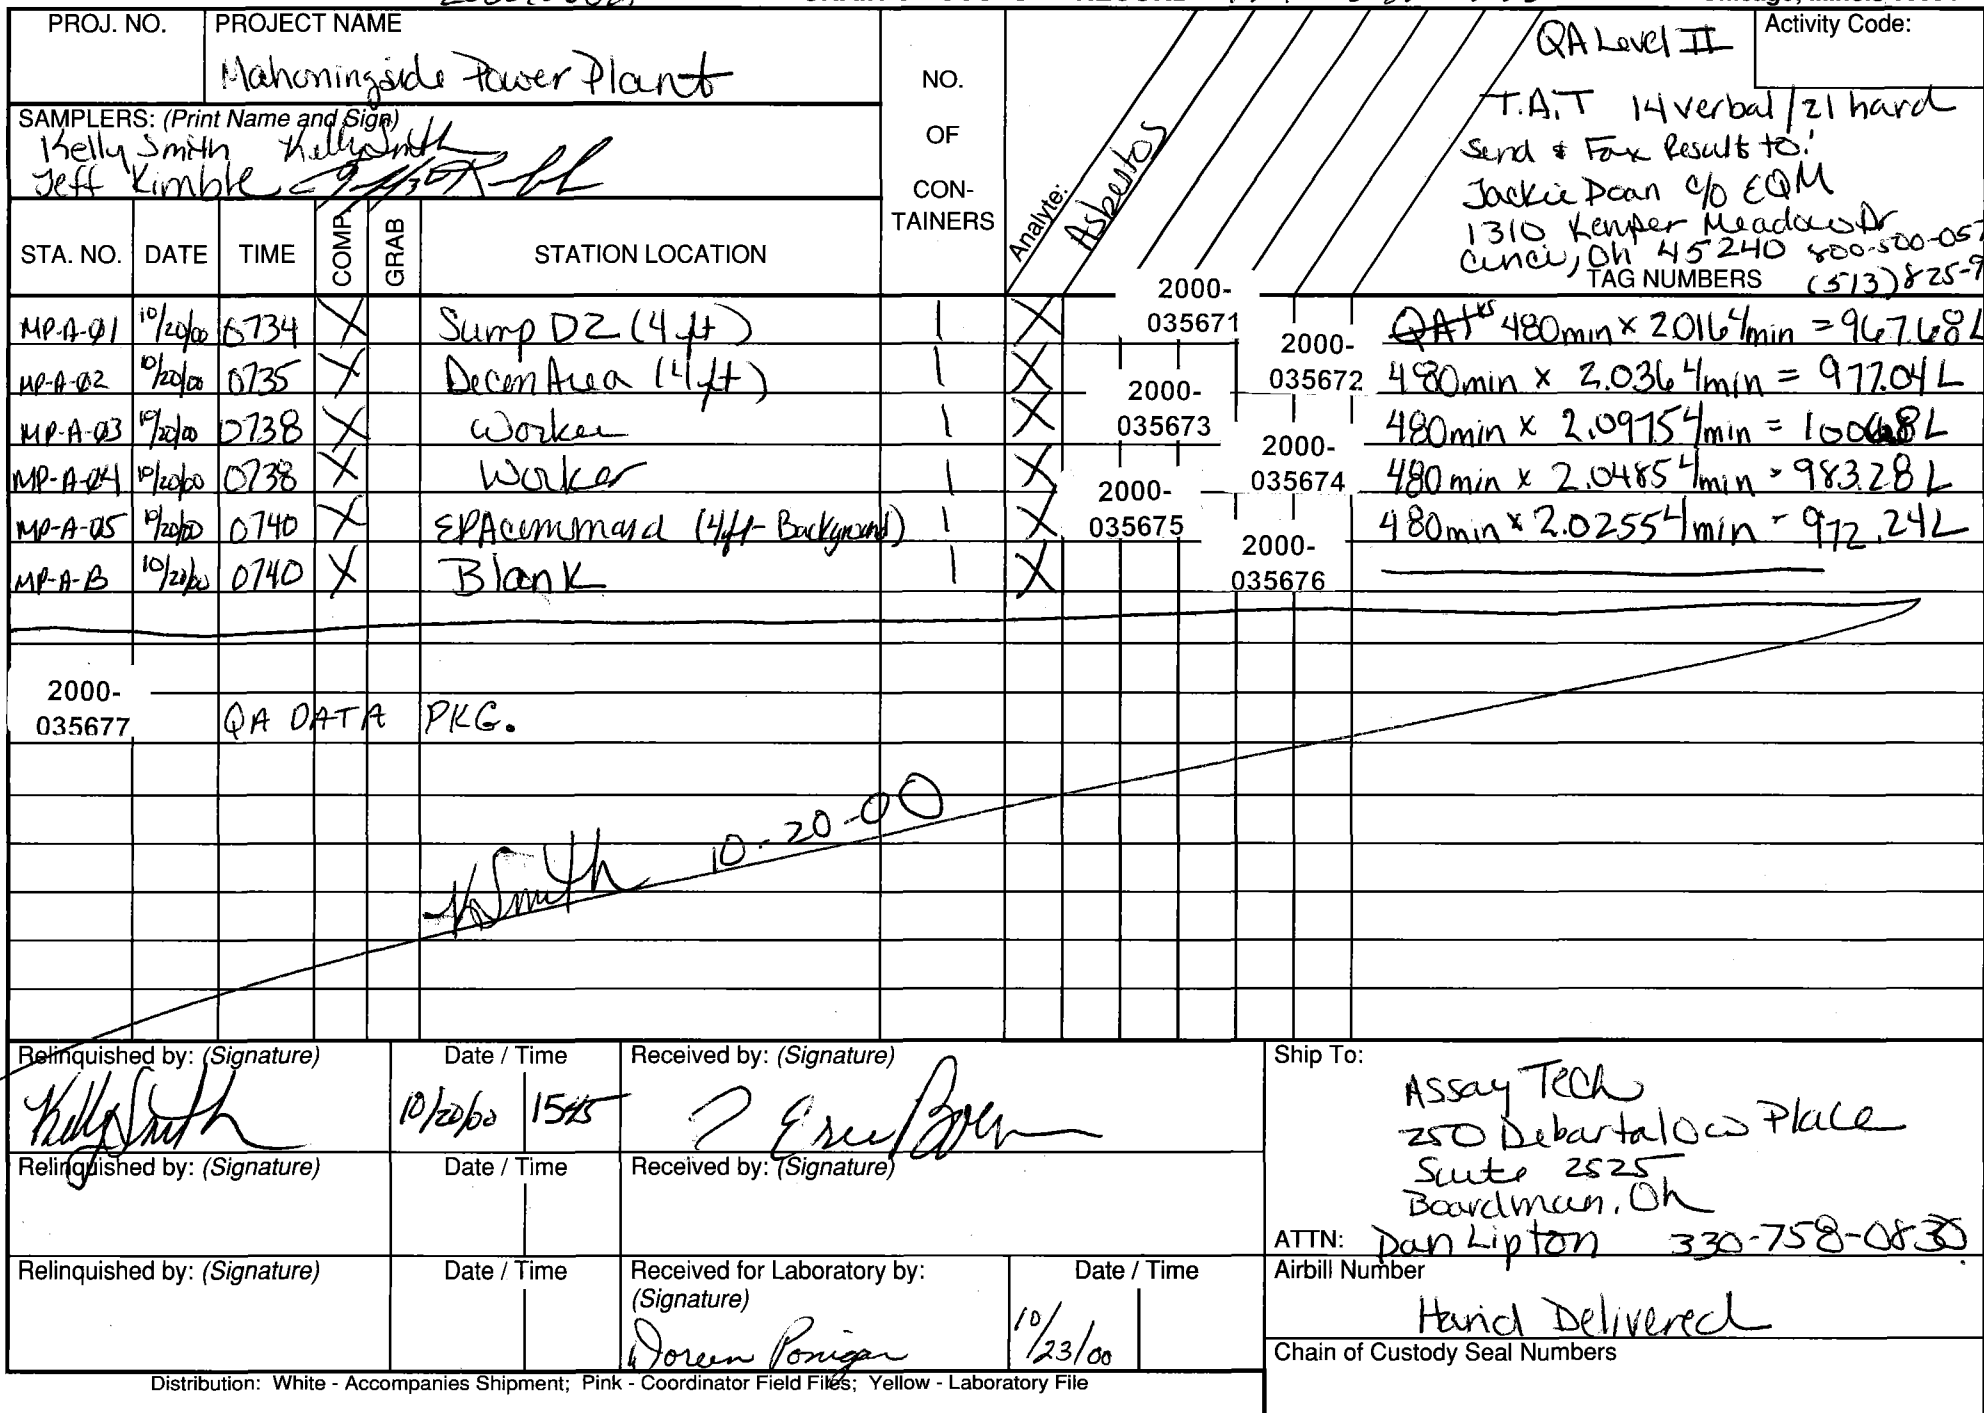 PROJ. NO. PROJECT NAME
Mahoningside Power Plant
NO.
OF
CON-
TAINERS
Analyte:
Asbestos
QA Level II
Activity Code:
T.A.T 14 verbal / 21 hard
Send & Fax Results to:
Jackie Doan c/o EQM
1310 Kemper Meadow Dr
Cinci, Oh 45240 800-500-057
TAG NUMBERS (513) 825-9
SAMPLERS: (Print Name and Sign)
Kelly Smith Kelly Smith
Jeff Kimble
STA. NO. DATE TIME COMP. GRAB STATION LOCATION
MP-A-01 10/20/00 0734 X Sump D2 (4 ft) 1 X 2000-035671 QA1 KS 480min x 2.016 L/min = 967.68 L
MP-A-02 10/20/00 0735 X Decon Area (4 ft) 1 X 2000-035672 480min x 2.036 L/min = 977.04 L
MP-A-03 10/20/00 0738 X Worker 1 X 2000-035673 480min x 2.0975 L/min = 1006.8 L
MP-A-04 10/20/00 0738 X Worker 1 X 2000-035674 480min x 2.0485 L/min = 983.28 L
MP-A-05 10/20/00 0740 X EPA command (4 ft - Background) 1 X 2000-035675 480min x 2.0255 L/min = 972.24 L
MP-A-B 10/20/00 0740 X Blank 1 X 2000-035676
2000-035677 QA DATA PKG.
K Smith 10-20-00
Relinquished by: (Signature) Date / Time Received by: (Signature)
Kelly Smith 10/20/00 1545
Relinquished by: (Signature) Date / Time Received by: (Signature)
Relinquished by: (Signature) Date / Time Received for Laboratory by: Date / Time
(Signature)
Doreen 10/23/00
Ship To:
Assay Tech
250 Debartalo Place
Suite 2525
Boardman, Oh
ATTN: Dan Lipton 330-758-0830
Airbill Number
Hand Delivered
Chain of Custody Seal Numbers
Distribution: White - Accompanies Shipment; Pink - Coordinator Field Files; Yellow - Laboratory File